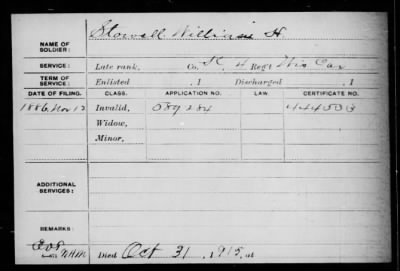 Stowell William H.
NAME OF SOLDIER:
SERVICE: Late rank, Co. K, 4 Reg't Wis Cav
TERM OF SERVICE: Enlisted , 1 Discharged , 1
DATE OF FILING. CLASS. APPLICATION NO. LAW. CERTIFICATE NO.
1886 Nov 12 Invalid, 589284 444503
Widow,
Minor,
ADDITIONAL SERVICES:
REMARKS:
Died Oct 31, 1915, at